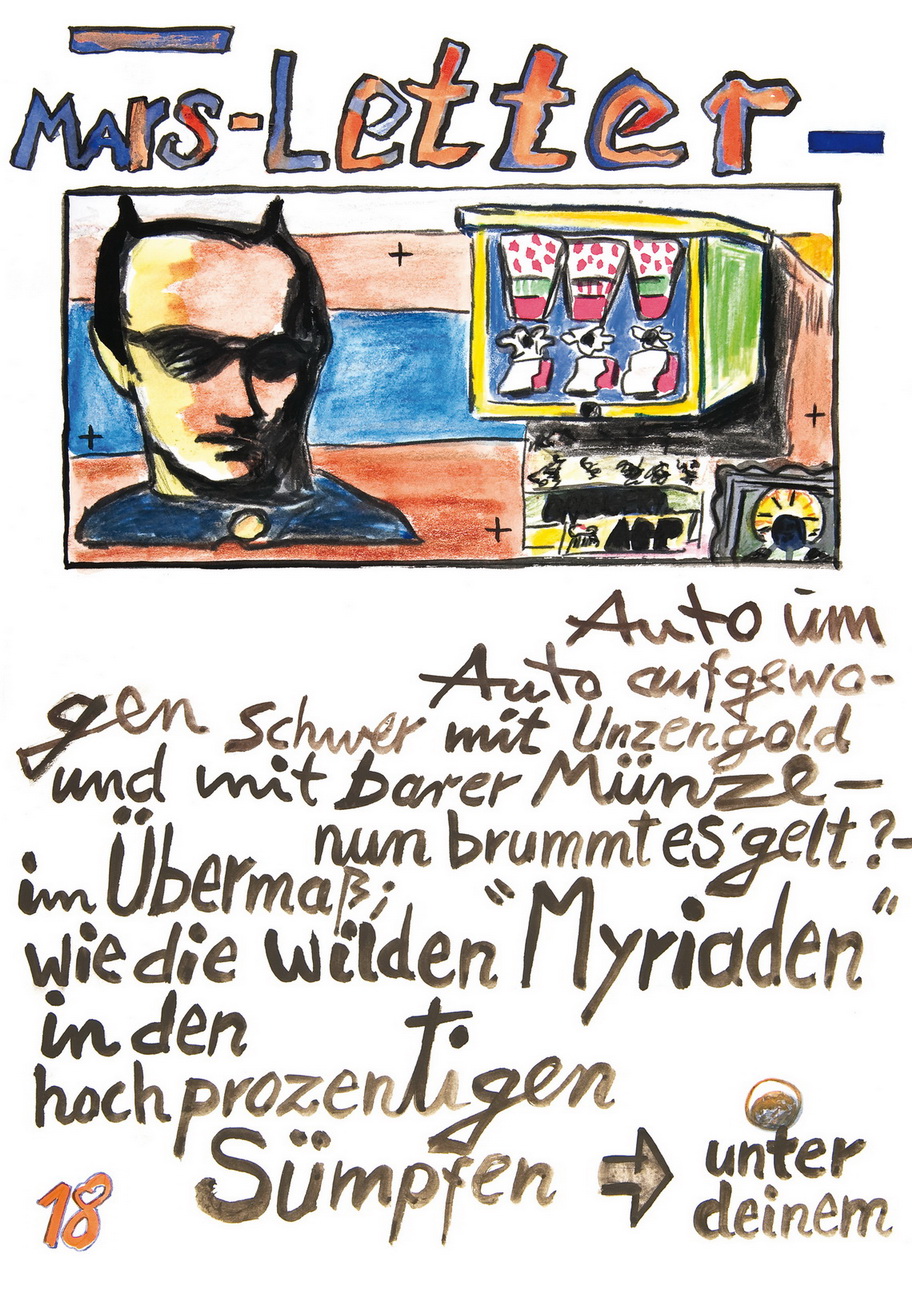 Mars-Letter-
Auto um
Auto aufgewo-
gen schwer mit Unzengold
und mit barer Münze-
nun brummt es' gelt?-
im Übermaß;
wie die wilden "Myriaden"
in den
hochprozentigen
Sümpfen → unter
deinem
18